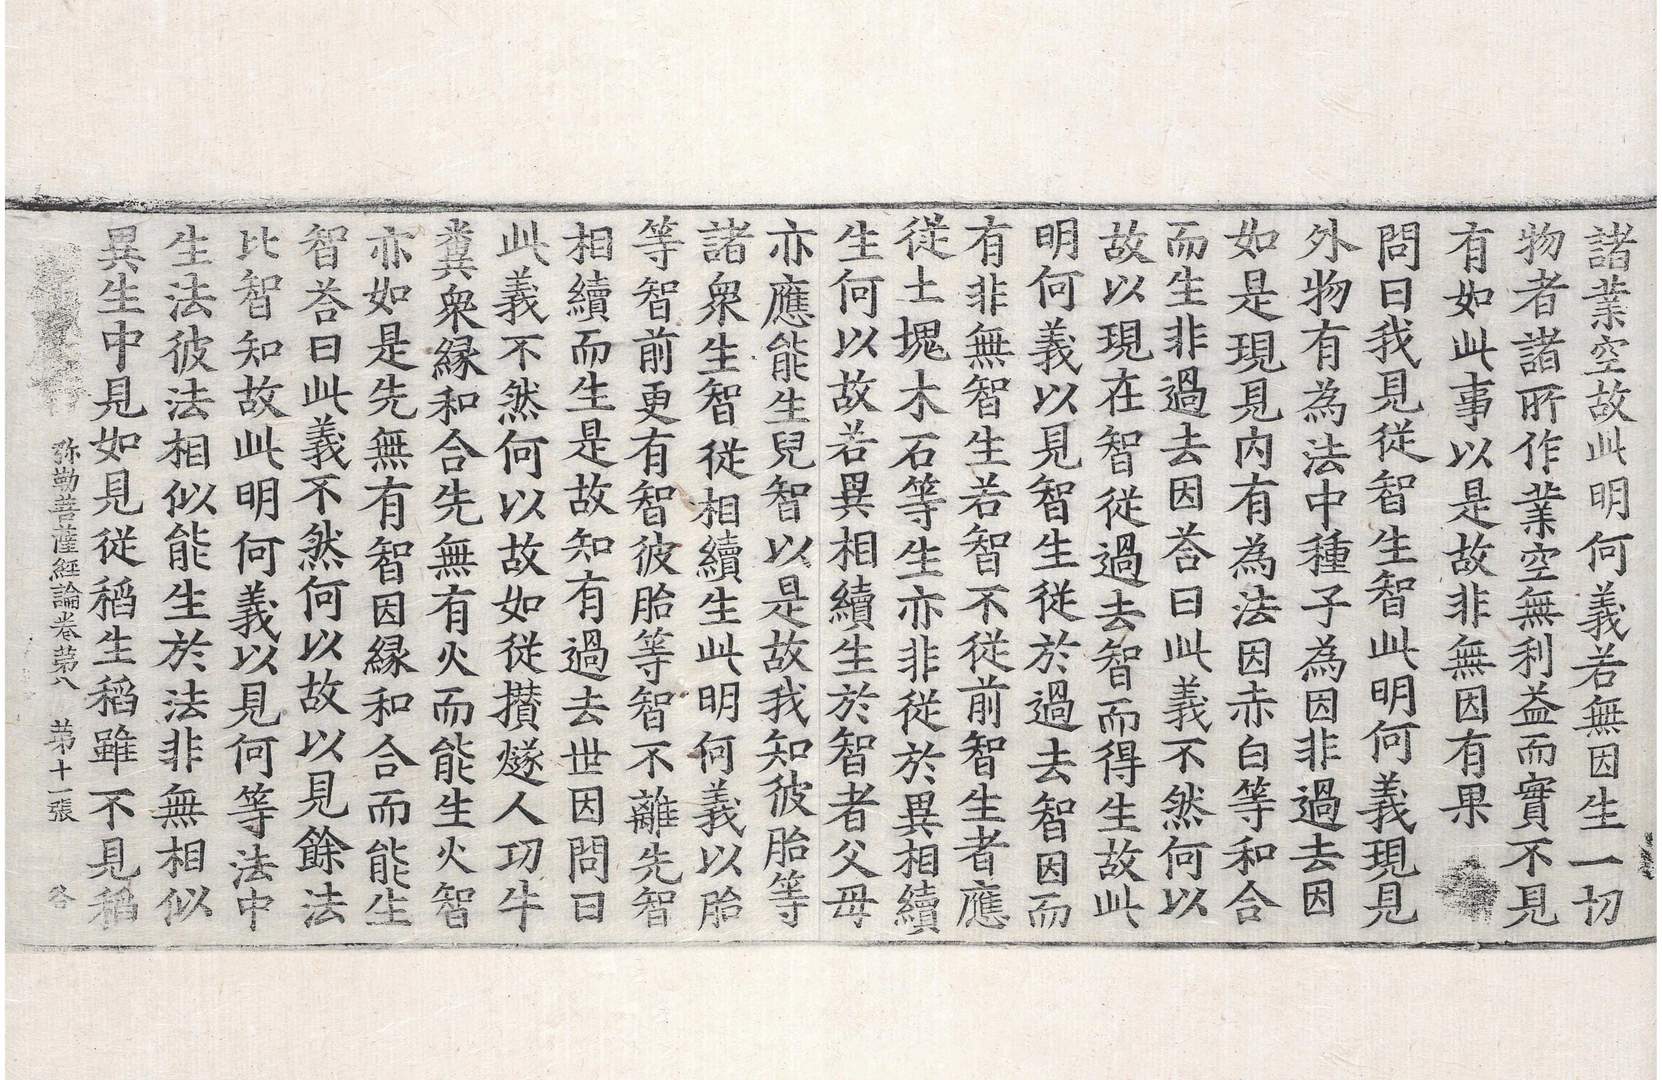 諸業空故此明何義若無因生一切
物者諸所作業空無利益而實不見
有如此事以是故非無因有果
問曰我見從智生智此明何義現見
外物有為法中種子為因非過去因
如是現見內有為法因赤白等和合
而生非過去因荅曰此義不然何以
故以現在智從過去智而得生故此
明何義以見智生從於過去智因而
有非無智生若智不從前智生者應
從土塊木石等生亦非從於異相續
生何以故若異相續生於智者父母
亦應能生兒智以是故我知彼胎等
諸衆生智從相續生此明何義以胎
等智前更有智彼胎等智不離先智
相續而生是故知有過去世因問曰
此義不然何以故如從攢燧人功牛
糞衆緣和合先無有火而能生火智
亦如是先無有智因緣和合而能生
智荅曰此義不然何以故以見餘法
比智知故此明何義以見何等法中
生法彼法相似能生於法非無相似
異生中見如見從稻生稻雖不見稻
弥勒菩薩經論卷第八 第十一張 各